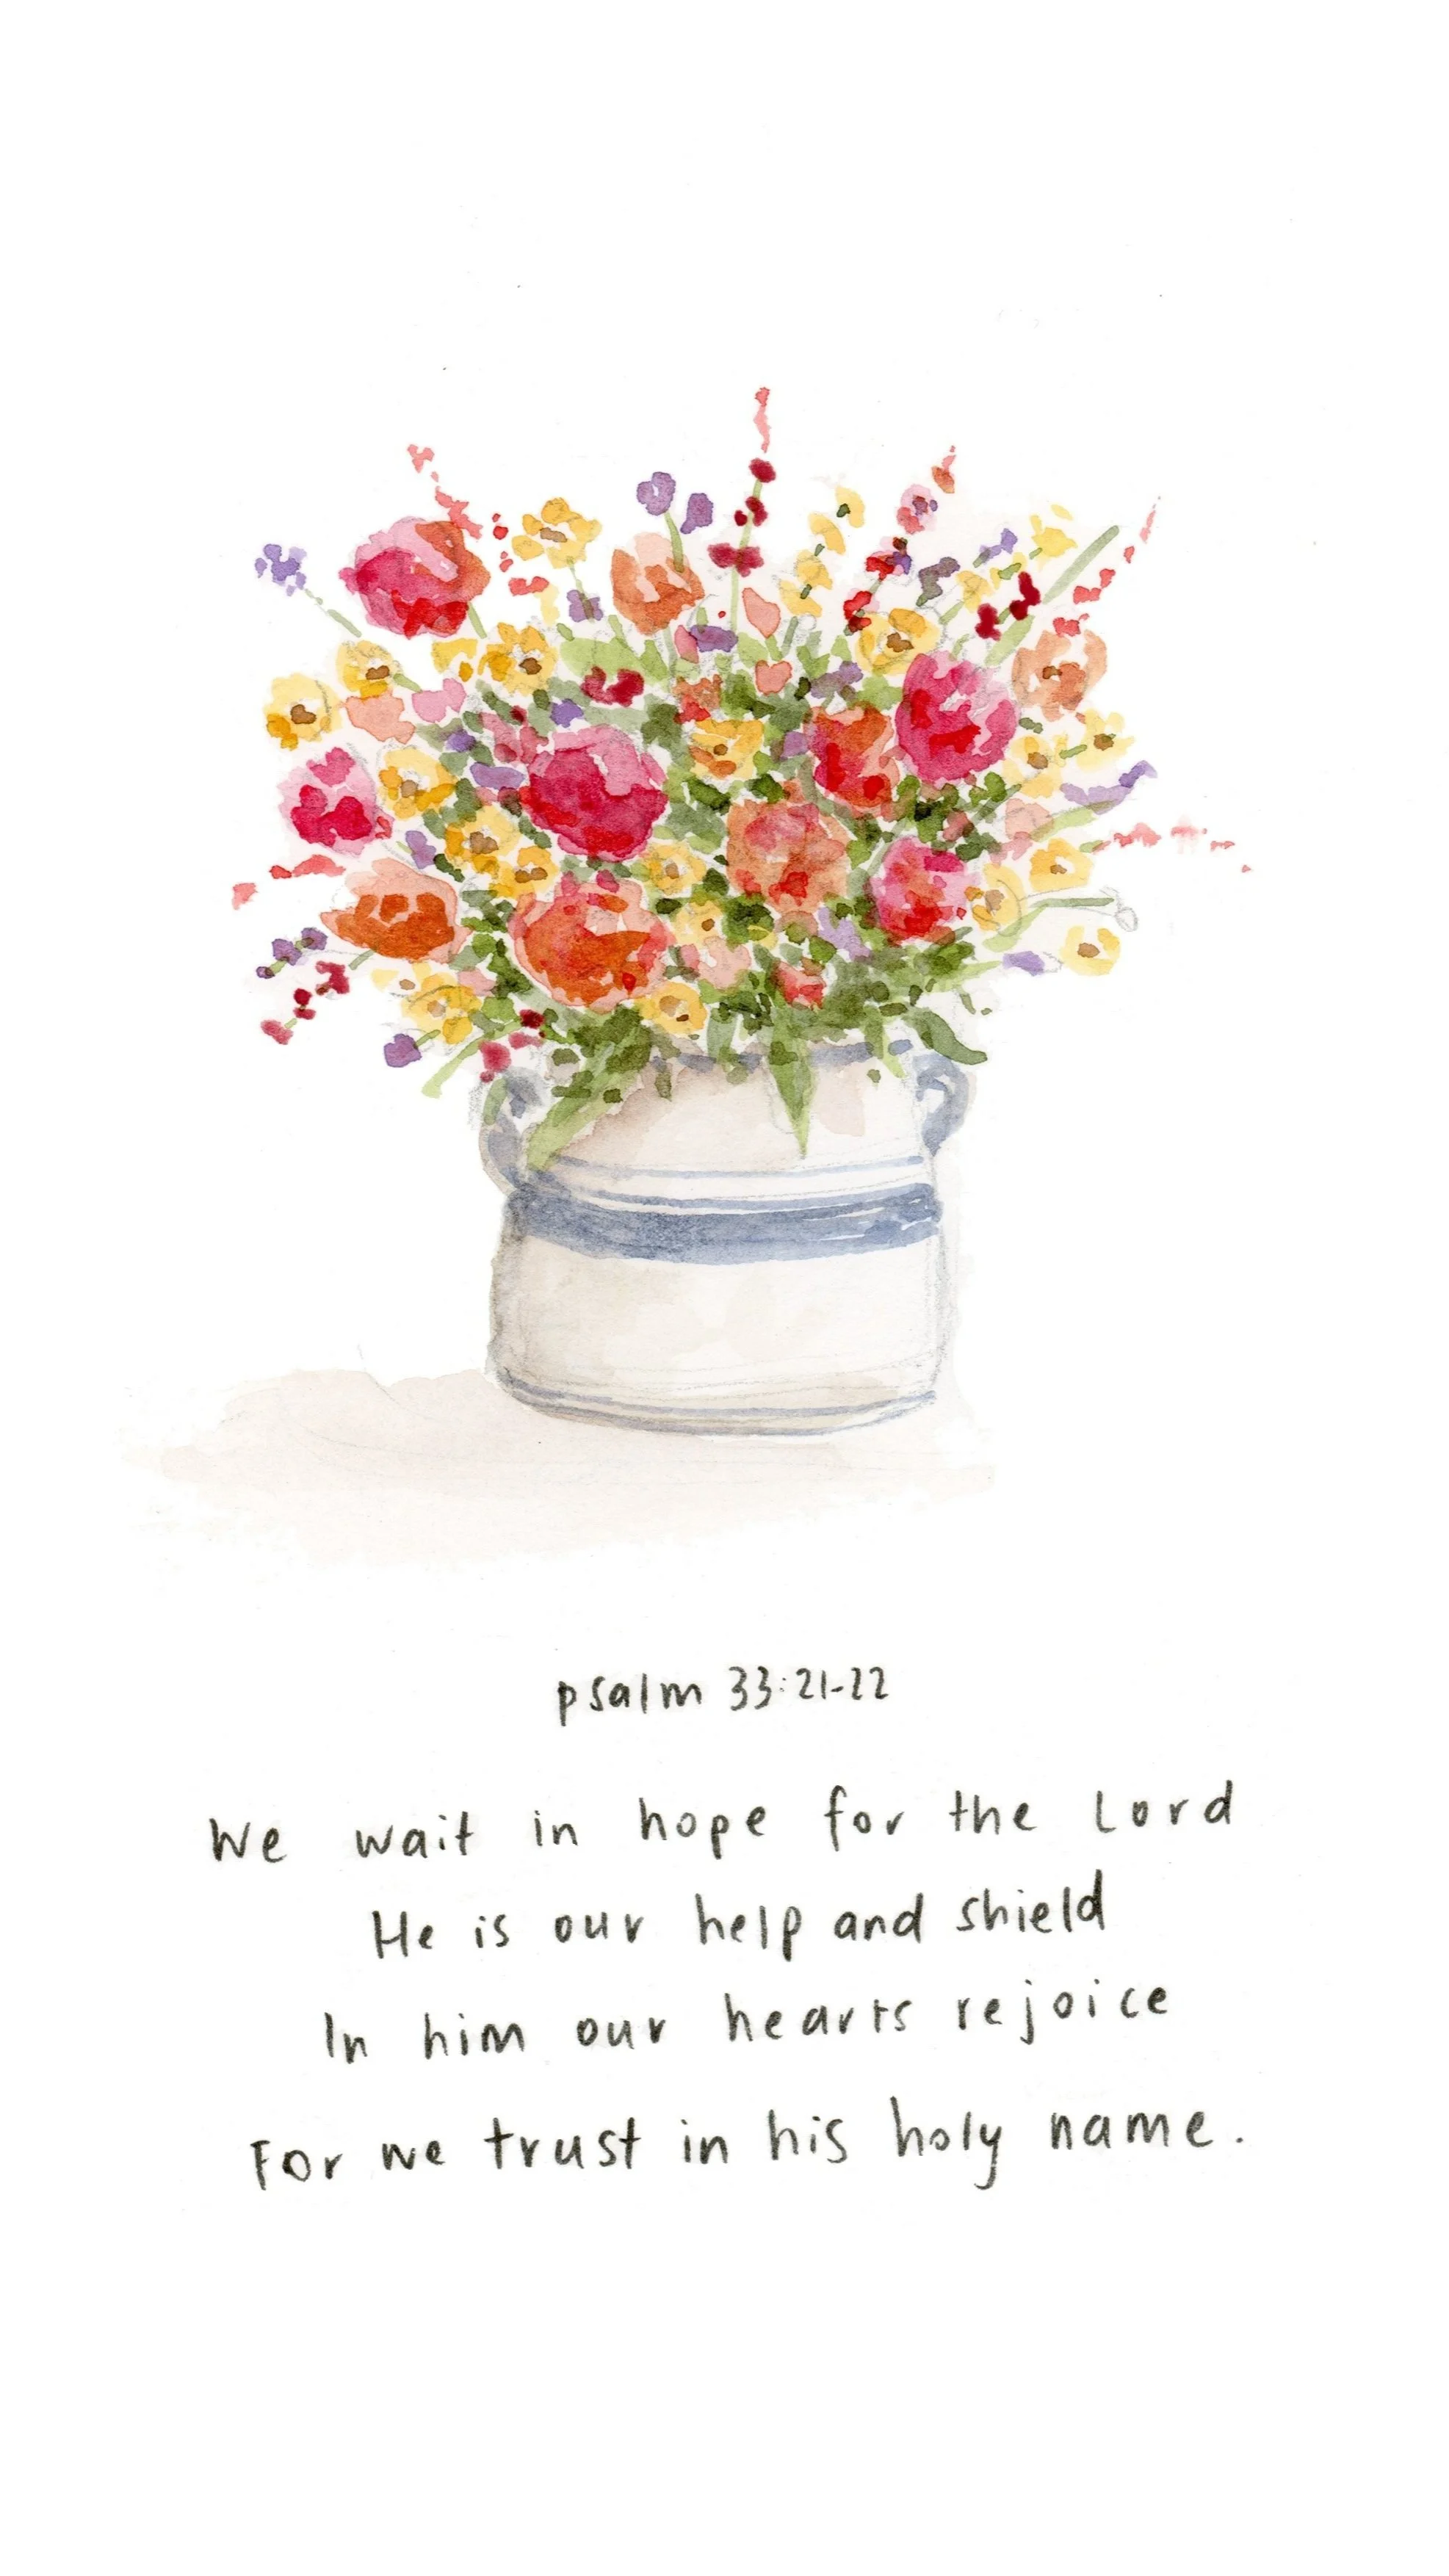 psalm 33:21-22
We wait in hope for the Lord
He is our help and shield
In him our hearts rejoice
For we trust in his holy name.